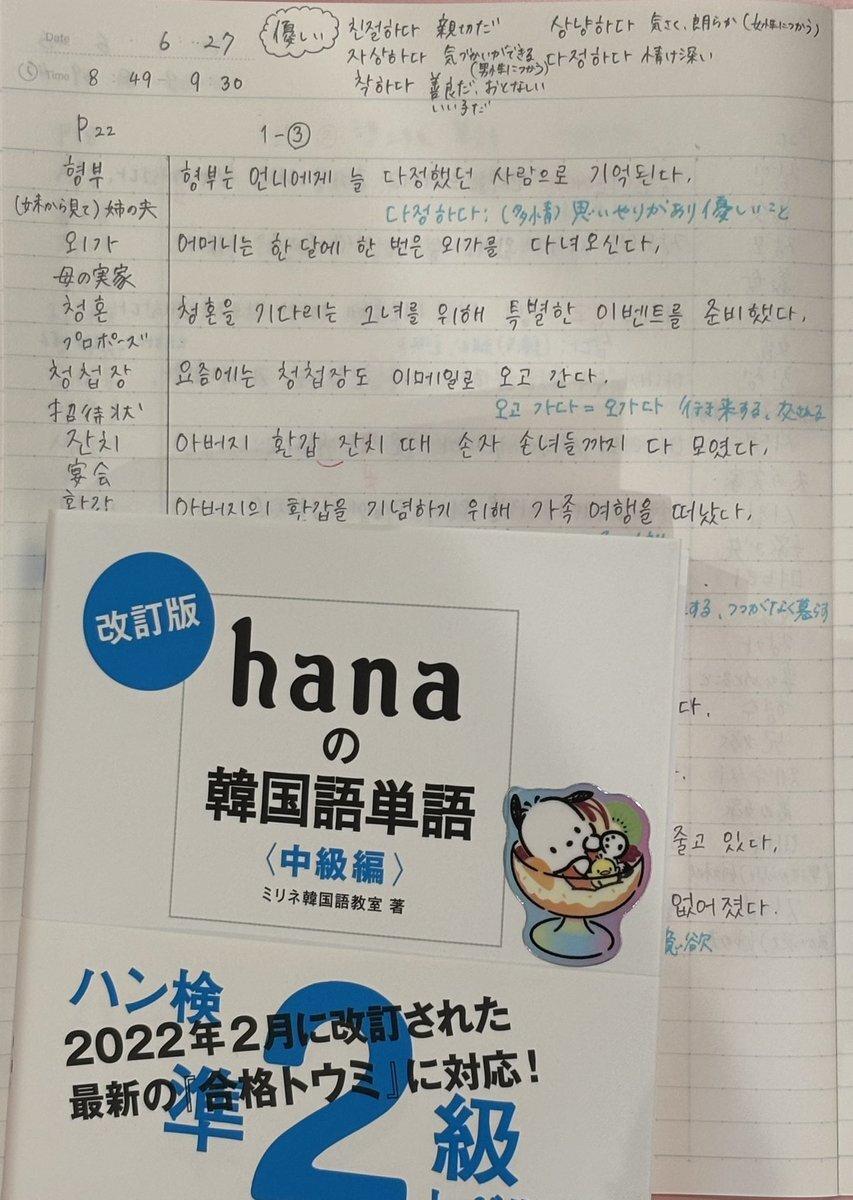 優しい 친절하다 親切だ 상냥하다 気さく、朗らか(女性につかう)
Date 6・27 자상하다 気づかいができる(男性につかう) 다정하다 情け深い
⑤ Time 8:49-9:30 착하다 善良だ、おとなしい
いい子だ
P22 1-③
형부 형부는 언니에게 늘 다정했던 사람으로 기억된다.
(妹から見て)姉の夫 다정하다:(多情)思いやりがあり優しいこと
외가 어머니는 한 달에 한 번은 외가를 다녀오신다.
母の実家
청혼 청혼을 기다리는 그녀를 위해 특별한 이벤트를 준비했다.
プロポーズ
청첩장 요즘에는 청첩장도 이메일로 오고 간다.
招待状 오고 가다=오가다 行き来する、交される
잔치 아버지 환갑 잔치 때 손자 손녀들까지 다 모였다.
宴会
환갑 아버지의 환갑을 기념하기 위해 가족 여행을 떠났다.
する、つつがなく暮らす
다.
줄고 있다.
없어졌다.
欲
改訂版
hana
の
韓国語単語
〈中級編〉
ミリネ韓国語教室 著
ハン検
2022年2月に改訂された
最新の『合格トウミ』に対応!
準2級